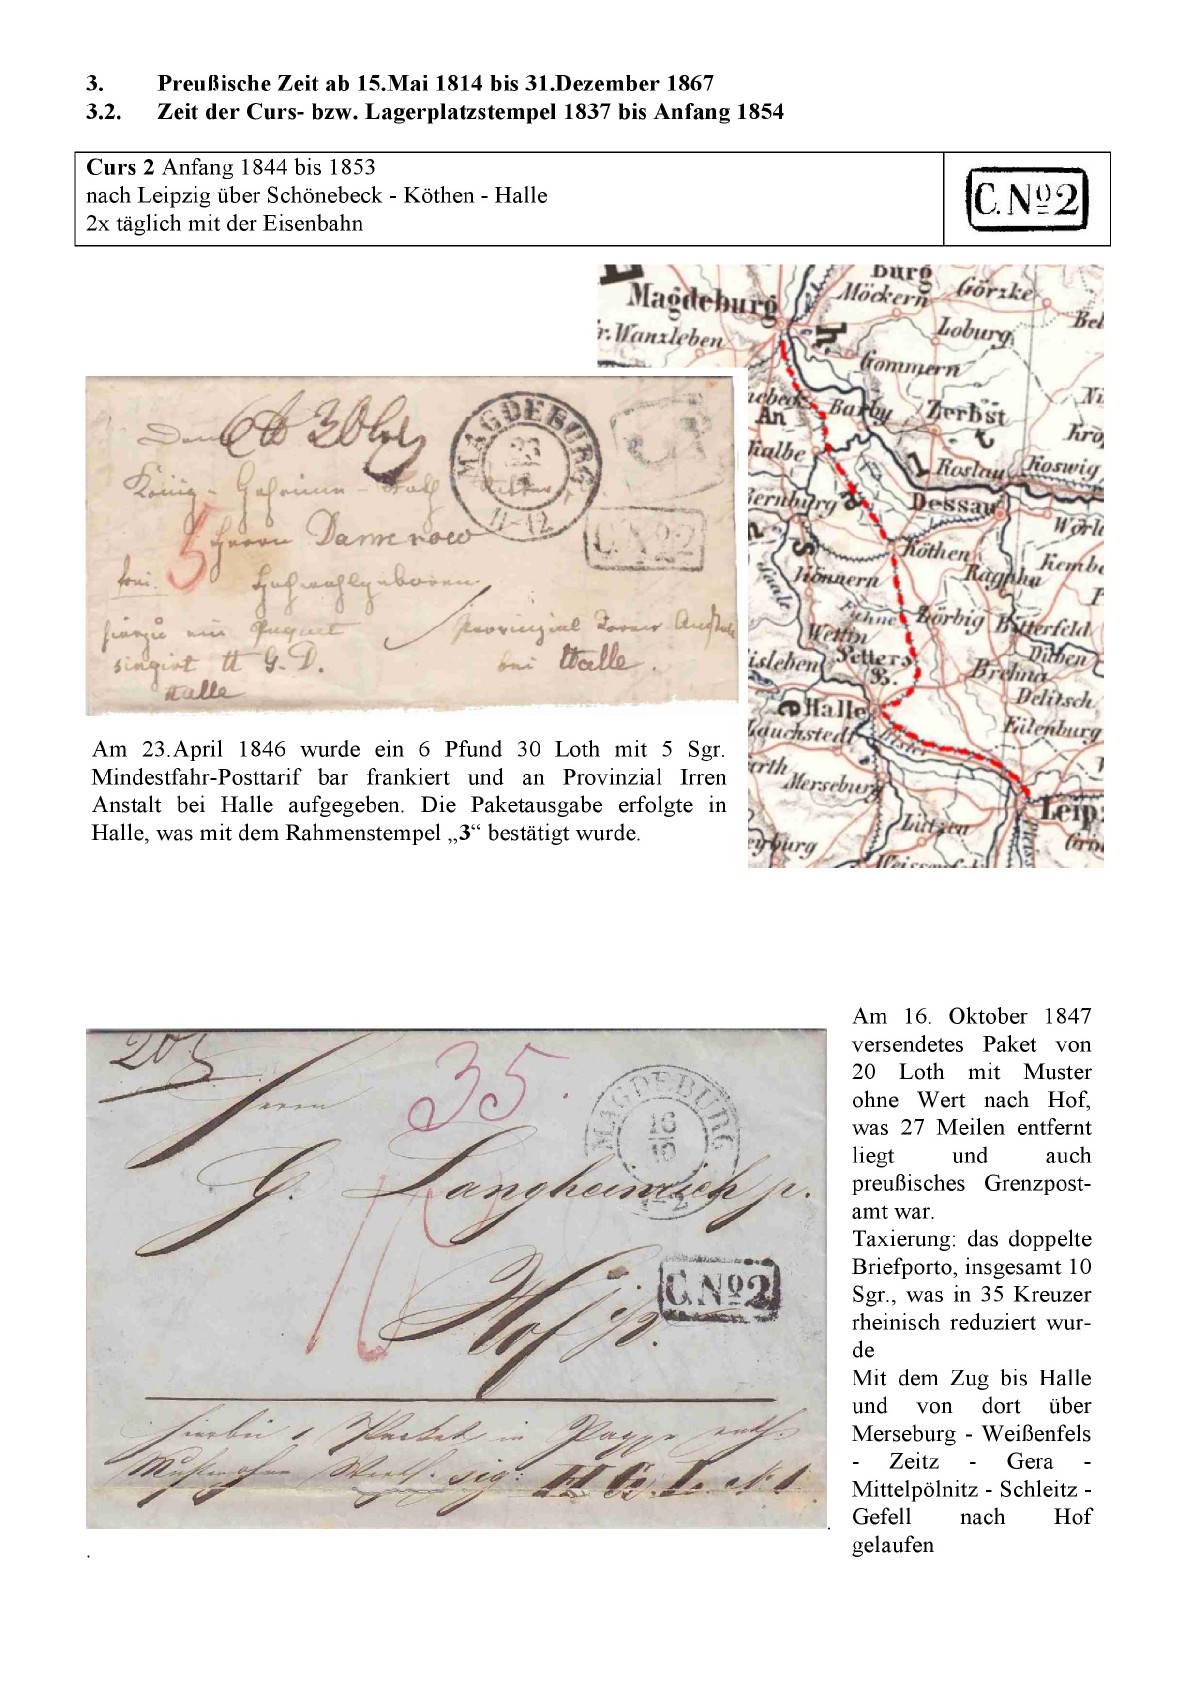 3. Preußische Zeit ab 15.Mai 1814 bis 31.Dezember 1867
3.2. Zeit der Curs- bzw. Lagerplatzstempel 1837 bis Anfang 1854
Curs 2 Anfang 1844 bis 1853
nach Leipzig über Schönebeck - Köthen - Halle
2x täglich mit der Eisenbahn
C. No 2
Burg
Magdeburg
Möckern
Görzke
r. Wanzleben
Loburg
Bel
Gommern
nebeck
Barby
Zerbst
An
h
a
l
t
Kalbe
Roslau
Koswig
Bernburg
Dessau
Wörl
Köthen
Raguhn
Kembe
Könnern
Saale
Fuhne
Zörbig
Bitterfeld
Wettin
Petters B.
Düben
isleben
Brehna
Delitsch
Halle
Eilenburg
Lauchstedt
Elster
Merseburg
Leip
Lützen
MAGDEBURG
23
4
11-12
6 lb 30 Lth
C. No 2
5
Herrn Damerow
Provinzial Irren Anstalt
bei Halle.
signirt H G. D.
Halle
Am 23.April 1846 wurde ein 6 Pfund 30 Loth mit 5 Sgr.
Mindestfahr-Posttarif bar frankiert und an Provinzial Irren
Anstalt bei Halle aufgegeben. Die Paketausgabe erfolgte in
Halle, was mit dem Rahmenstempel „3“ bestätigt wurde.
35.
MAGDEBURG
16
10
Herrn
G. Langheinrich
Hof
C. No 2
sig: H G. L. No 1
Am 16. Oktober 1847
versendetes Paket von
20 Loth mit Muster
ohne Wert nach Hof,
was 27 Meilen entfernt
liegt und auch
preußisches Grenzpost-
amt war.
Taxierung: das doppelte
Briefporto, insgesamt 10
Sgr., was in 35 Kreuzer
rheinisch reduziert wur-
de
Mit dem Zug bis Halle
und von dort über
Merseburg - Weißenfels
- Zeitz - Gera -
Mittelpölnitz - Schleitz -
Gefell nach Hof
gelaufen